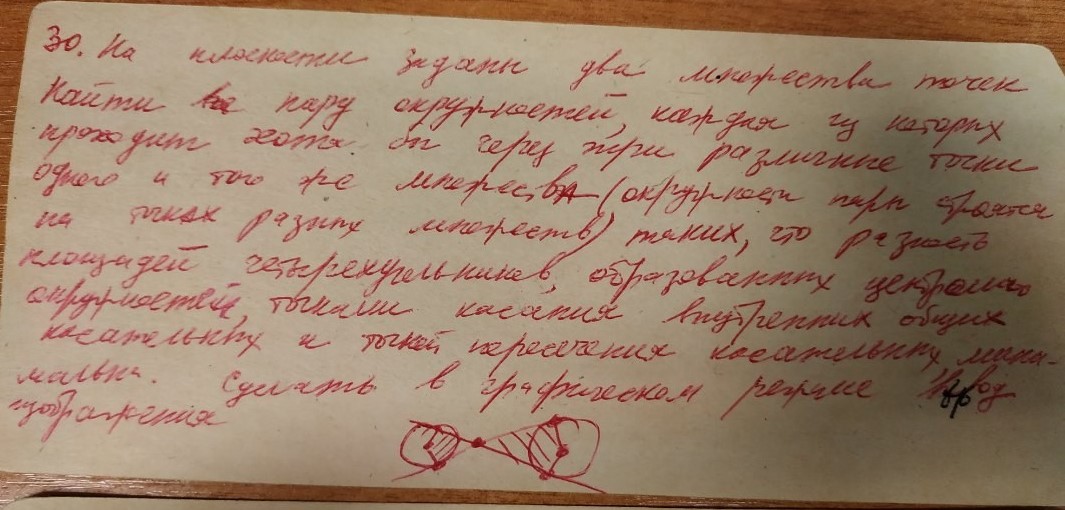 30. На плоскости заданы два множества точек
Найти пару окружностей, каждая из которых
проходит хотя бы через три различные точки
одного и того же множества (окружности пары строятся
на точках разных множеств) таких, что разность
площадей четырехугольников, образованных центрами
окружностей, точками касания внутренних общих
касательных и точкой пересечения касательных, мини-
мальна. Сделать в графическом режиме вывод
изображения